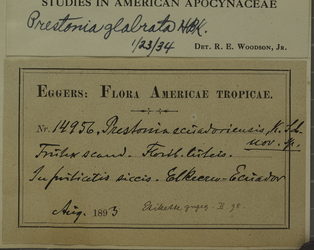 STUDIES IN AMERICAN APOCYNACEAE
Prestonia glabrata HBK.
1/23/34 DET. R. E. WOODSON, JR.
EGGERS: FLORA AMERICAE TROPICAE.
Nr. 14956. Prestonia ecuadoriensis, K. Sch.
nov. sp.
Frutex scand. Flor. luteis.
In fruticetis siccis. El Recreo - Ecuador
Aug. 1893